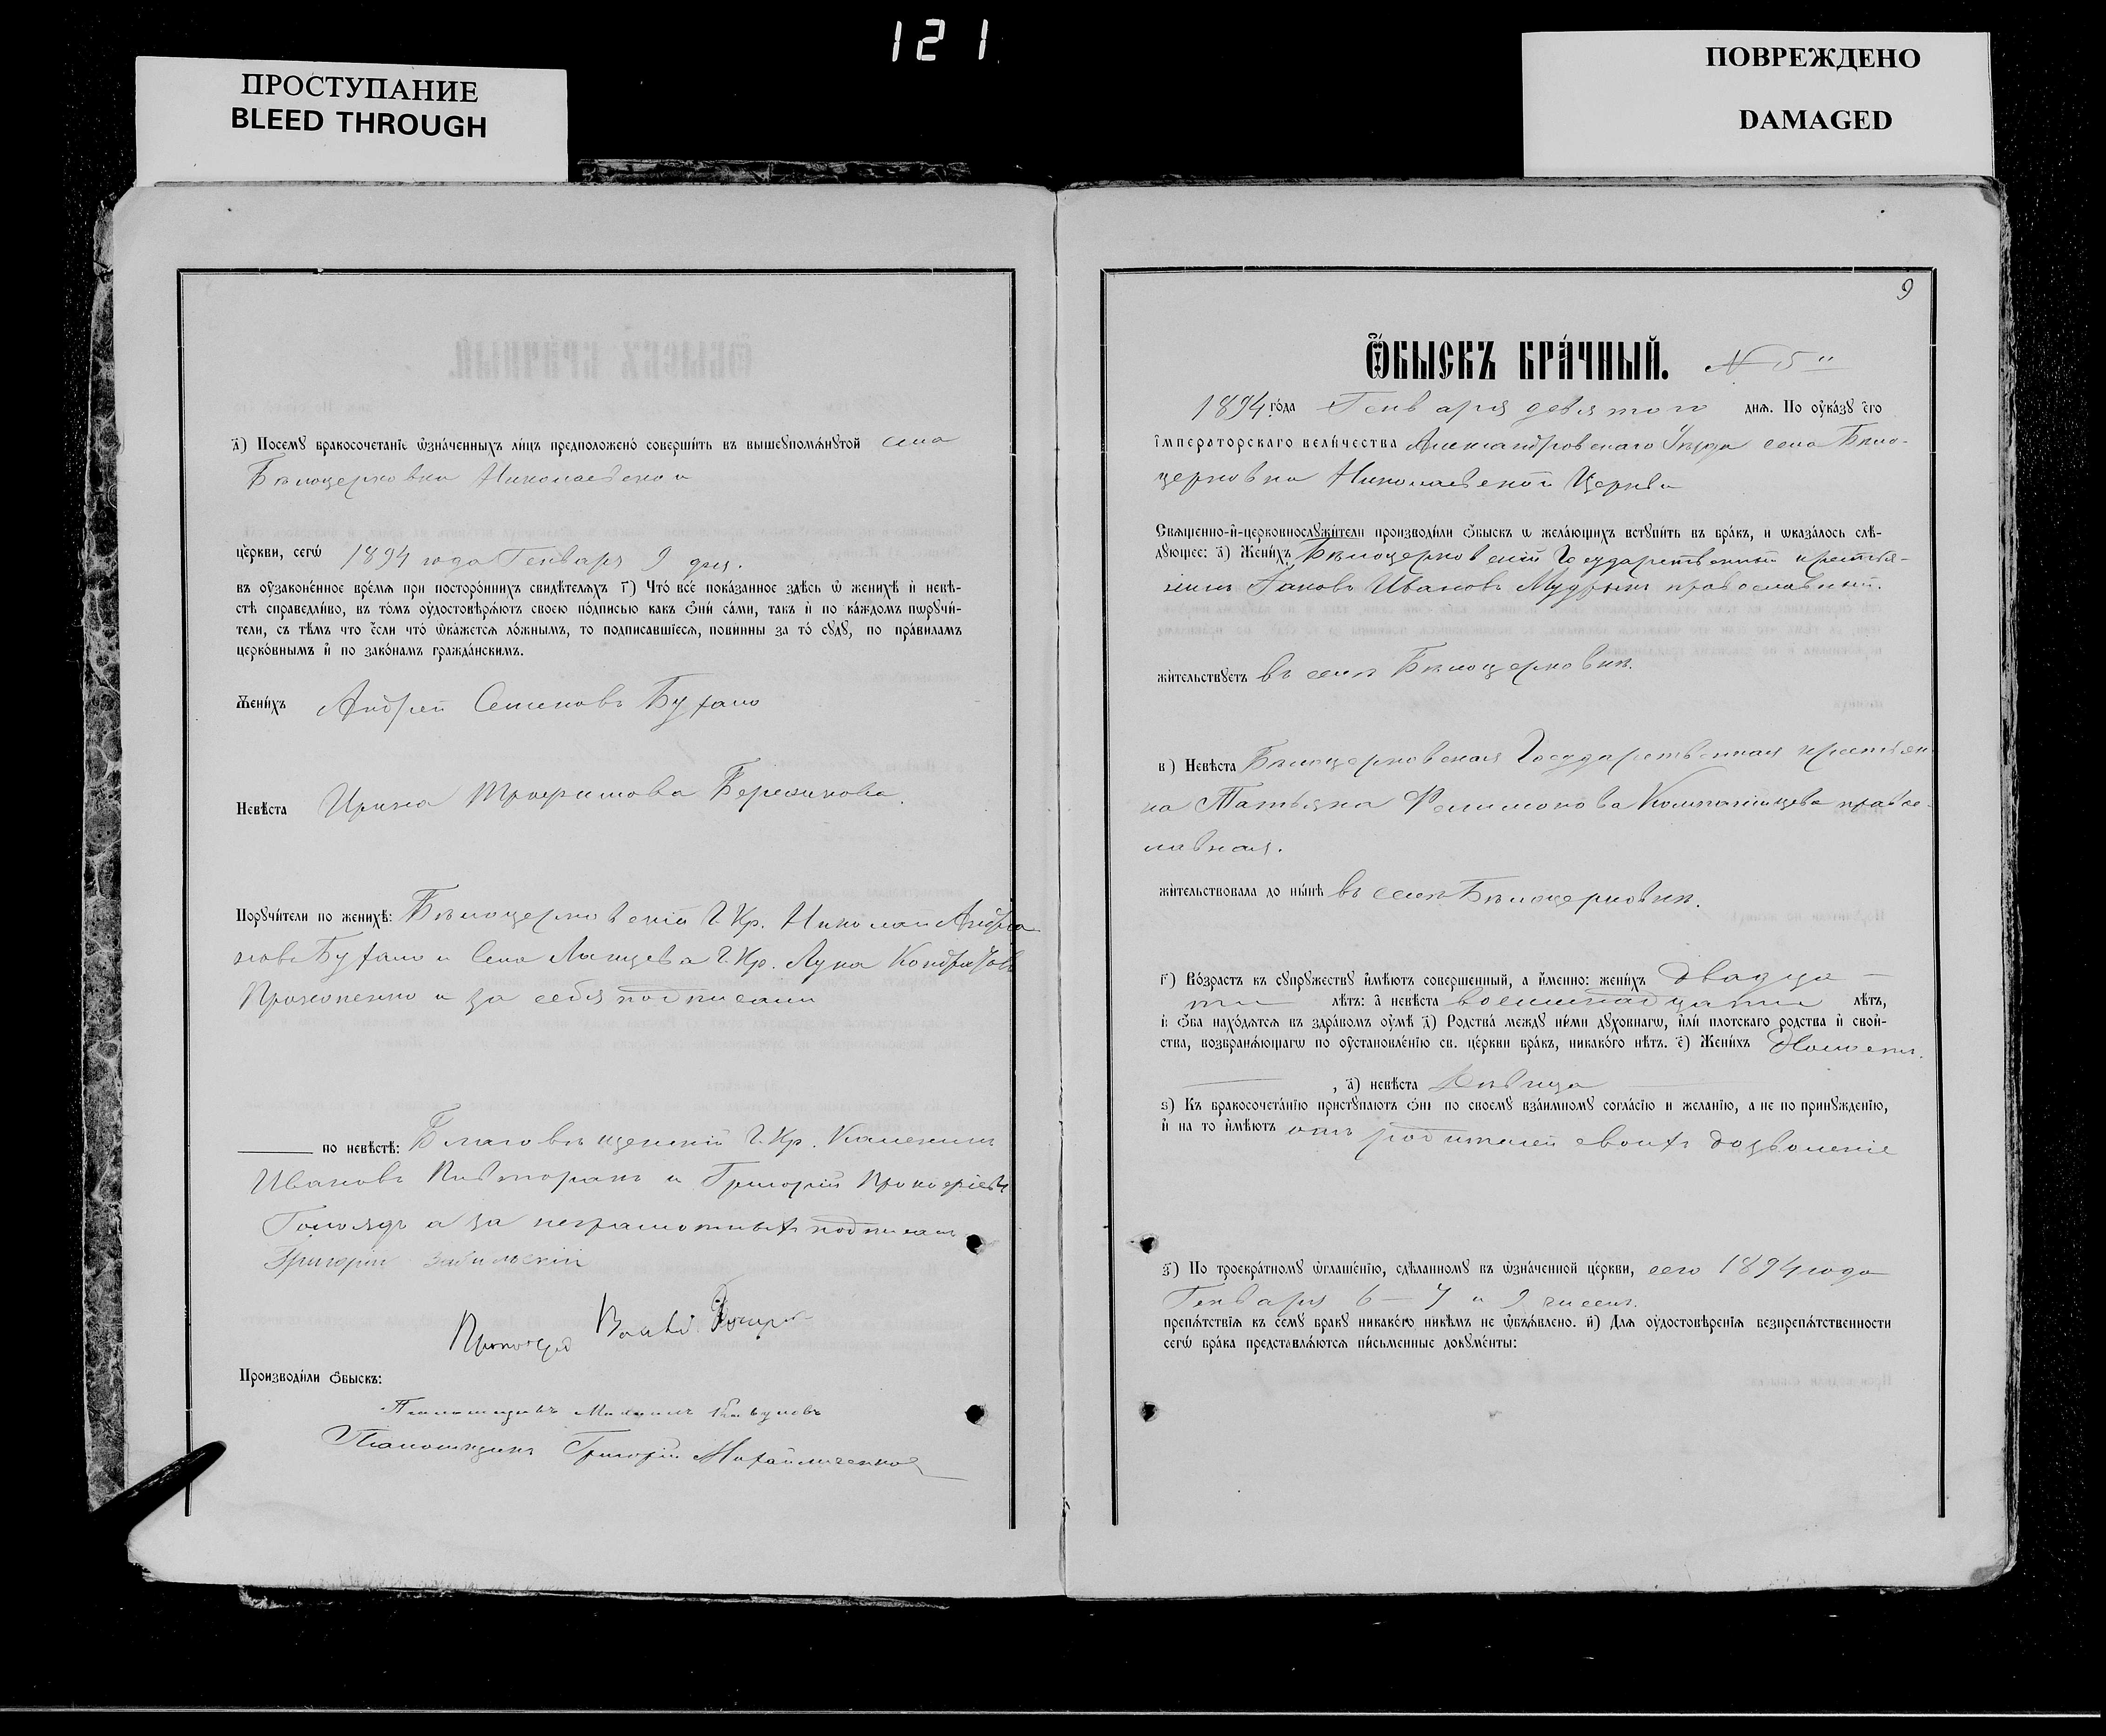 121
ПРОСТУПАНИЕ
BLEED THROUGH
ПОВРЕЖДЕНО
DAMAGED
д҃) Посемꙋ бракосочетанїе ѡ҆зна́ченныхъ ли́цъ предположено̀ соверши́ть въ вышеꙋпомѧ́нꙋтой села
Бѣлоцерковки Николаевской
це́ркви, сегѡ̀ 1894 года Генваря 9 дня.
въ оу҆законе́нное вре́мѧ при посторо́ннихъ свидѣ́телѧхъ г҃) Что̀ всѐ пока́занное здѣ́сь ѡ҆ женихѣ̀ и҆ невѣ́-
стѣ справедли́во, въ то́мъ оу҆достовѣрѧ́ютъ свое́ю по́дписью какъ ѻ҆нѝ са́ми, та́къ и҆ по ка́ждомъ пѡрꙋчи́-
тели, съ тѣ́мъ что є҆́сли что̀ ѡ҆ка́жетсѧ ло́жнымъ, то подписавшїесѧ, пови́нны за то̀ сꙋдꙋ̀, по пра́виламъ
церко́внымъ и҆ по зако́намъ гражда́нскимъ.
Жени́хъ Андрей Семеновъ Бухало
Невѣ́ста Ирина Трофимова Березикова.
Порꙋчи́тели по женихѣ̀: Бѣлоцерковскій Г. Кр. Николай Андреа
новъ Бухало и Села Г. Кр. Лука Кондратовъ
Прокопенко и за себя подписали
по невѣ́стѣ: Благовѣщенскій Г. Кр. Калекинъ
Ивановъ Пивторакъ и Григорій Прокофіевъ
Гололядъ а за неграмотныхъ подписалъ
Григорій
Производи́ли ѻ҆́быскъ:
Псаломщикъ Михаилъ
Псаломщикъ Григорій Михайличенко
9
Ѻ҆́БЫСКЪ БРА́ЧНЫЙ. N 5"
1894 го́да Генваря девятого днѧ. По оу҆ка́зꙋ є҆гѡ̀
і҆мператорскаго вели́чества Александровскаго Уѣзда села Бѣло-
церковки Николаевской Церкви
Свѧщенно-и҆-церковнослꙋжи́тели производи́ли ѻ҆́быскъ ѡ҆ жела́ющихъ встꙋпи́ть въ бра́къ, и ѡ҆каза́лось слѣ́-
дꙋющее: а҃) Жени́хъ Бѣлоцерковскій Государственный крестья-
нинъ Іаковъ Ивановъ Мудрыкъ православный.
жи́тельствꙋетъ въ селѣ Бѣлоцерковкѣ.
в҃) Невѣ́ста Бѣлоцерковская Государственная крестьян
ка Татьяна Филимонова Компанійцева правос-
лавная.
жи́тельствовала до ны́нѣ въ селѣ Бѣлоцерковкѣ.
г҃) Во́зрастъ къ сꙋпрꙋжествꙋ и҆мѣ́ютъ соверше́нный, а и҆́менно: жени́хъ двадца-
ти лѣ́тъ: а҆ невѣ́ста восимнадцати лѣ́тъ,
и҆ ѻ҆́ба нахо́дѧтсѧ въ здра́вомъ оу҆мѣ̀ д҃) Родства̀ междꙋ ни́ми дꙋховнагѡ, и҆лѝ плотскаго родства и҆ свой-
ства, возбранѧ́ющагѡ по оу҆становле́нїю св. це́ркви бра́къ, никако́го нѣ́тъ. є҃) Жени́хъ Холостъ.
, а҆) невѣ́ста Дѣвица
ѕ҃) Къ бракосочета́нїю пристꙋпа́ютъ ѻ҆нѝ по своемꙋ̀ взаи́мномꙋ согла́сїю и жела́нїю, а не по принꙋжде́нїю,
и҆ на то и҆мѣ́ютъ отъ родителей своихъ дозволеніе
з҃) По троекра́тномꙋ ѡ҆глаше́нїю, сдѣ́ланномꙋ въ ѡ҆зна́ченной це́ркви, сего 1894 года
Генваря 6 – 7 и 9 числъ.
препѧ́тствїѧ къ семꙋ̀ бракꙋ никако́го никѣ́мъ не ѡ҆бъѧ́влено. и҃) Длѧ оу҆достовѣ́ренїѧ безпрепѧ́тственности
сегѡ̀ бра́ка предста́влѧютсѧ пи́сьменные докꙋме́нты: